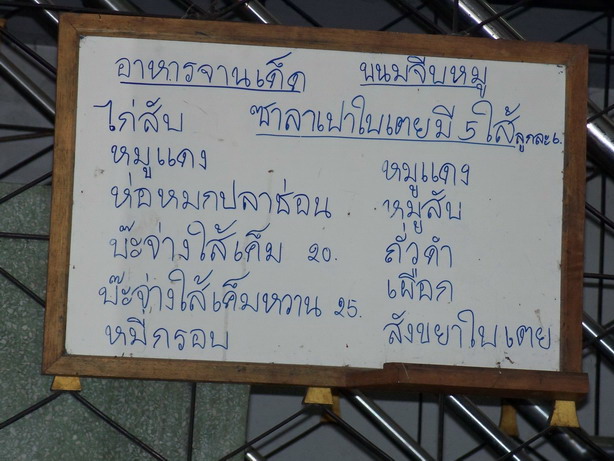 อาหารจานเด็ด ขนมจีบหมู
ไก่สับ ซาลาเปาใบเตยมี 5 ใส้ ลูกละ 6.
หมูแดง หมูแดง
ห่อหมกปลาช่อน หมูสับ
บ๊ะจ่างใส้เค็ม 20. ถั่วดำ
บ๊ะจ่างใส้เค็มหวาน 25. เผือก
หมี่กรอบ สังขยาใบเตย